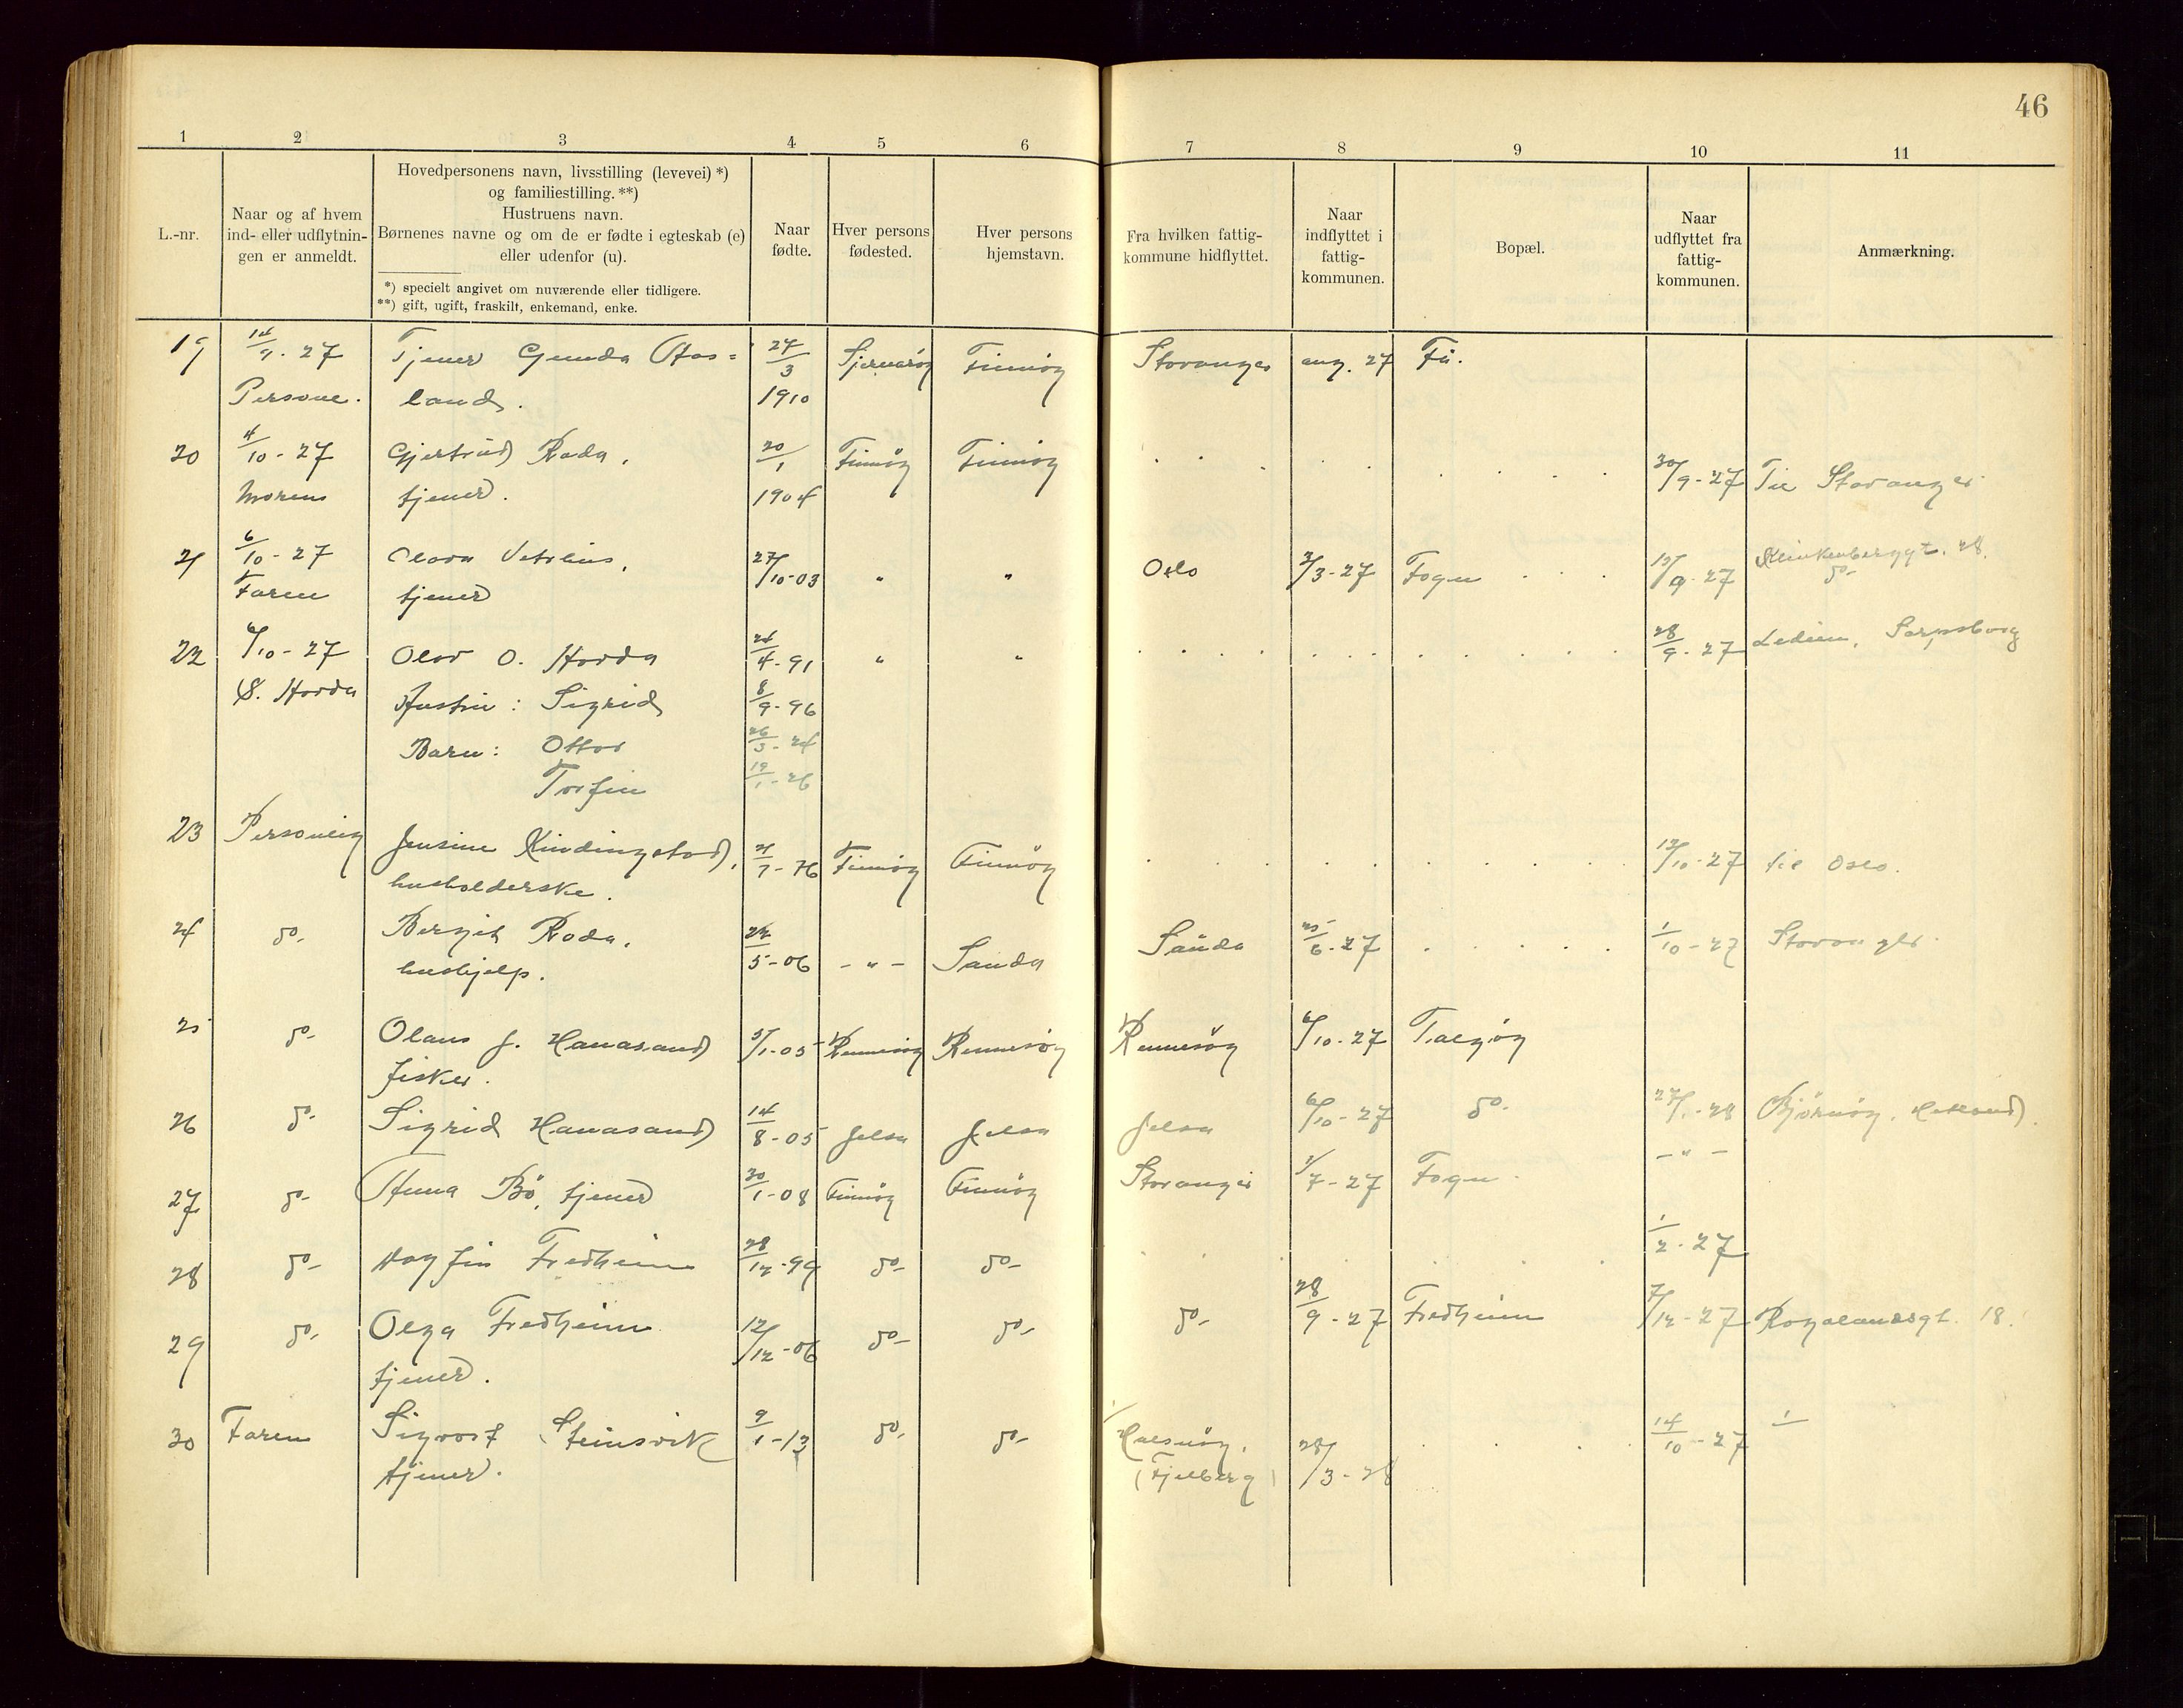 46
1 2 3 4 5 6 7 8 9 10 11
L.-nr.
Naar og af hvem
ind- eller udflytnin-
gen er anmeldt.
Hovedpersonens navn, livsstilling (levevei) *)
og familiestilling. **)
Hustruens navn.
Børnenes navne og om de er fødte i egteskab (e)
eller udenfor (u).
*) specielt angivet om nuværende eller tidligere.
**) gift, ugift, fraskilt, enkemand, enke.
Naar
fødte.
Hver persons
fødested.
Hver persons
hjemstavn.
Fra hvilken fattig-
kommune hidflyttet.
Naar
indflyttet i
fattig-
kommunen.
Bopæl.
Naar
udflyttet fra
fattig-
kommunen.
Anmærkning.
19 14/9-27 Tjener Gunda Aas= 24/3 Sjernarøy Finnøy Stavanger aug. 27 Fu.
land. 1910
20 4/10-27 Gjertrud Roda, 20/1 Finnøy Finnøy 30/9-27 Til Stavanger
Morens tjener. 1904
21 6/10-27 Olava Vetrhus, 27/10-03 " " Oslo 3/3-27 Fogn 19/9-27 Klinkenberggt. 28.
Faren tjener do-
22 6/10-27 Olav O. Horda 24/4-91 " " 28/9-27 Sarpsborg
S. Horda Hustru: Sigrid 8/9-96
Barn: Ottar 26/3-24
Torfin 19/1-26
23 Personlig Jensine Kindingstad, 21/7-76 Finnøy Finnøy 12/10-27 til Oslo.
husholderske.
24 do- Bergit Roda, 24/5-06 -"- Sauda Sauda 25/6-27 1/10-27 Stavanger
hushjelp.
25 do- Olaus J. Hanasand 5/1-05 Rennesøy Rennesøy Rennesøy 6/10-27 Talgøy
fisker.
26 do- Sigrid Hanasand 14/8-05 Jelsa Jelsa Jelsa 6/10-27 do- 27/1-28 Bjørnøy, Hetland.
27 do- Anna Bø, tjener 30/1-08 Finnøy Finnøy Stavanger 1/7-27 Fogn -"-
28 do- Dagfin Fredheim 28/12-99 do- do- 1/2-27
29 do- Olga Fredheim 12/12-06 do- do- do- 28/9-27 Fredheim 7/12-27 Rogalandsgt. 18.
tjener.
30 Faren Sigvart Steinsvik 9/1-13 do- do- Halsnøy, 28/3-28 14/10-27 1
tjener. (Fjelberg)